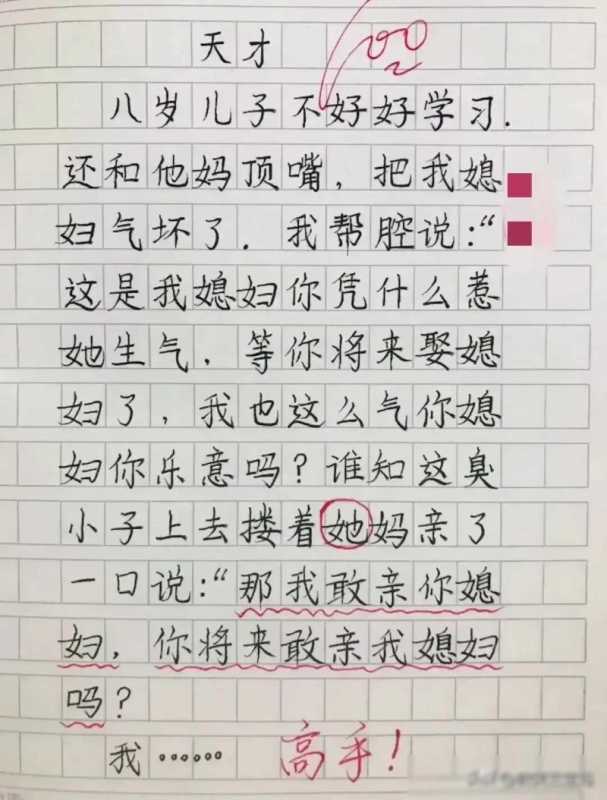 天才
八岁儿子不好好学习.
还和他妈顶嘴,把我媳
妇气坏了.我帮腔说:“
这是我媳妇你凭什么惹
她生气.等你将来娶媳
妇了,我也这么气你媳
妇你乐意吗?谁知这臭
小子上去搂着她妈亲了
一口说:“那我敢亲你媳
妇,你将来敢亲我媳妇
吗?
我……
高手!